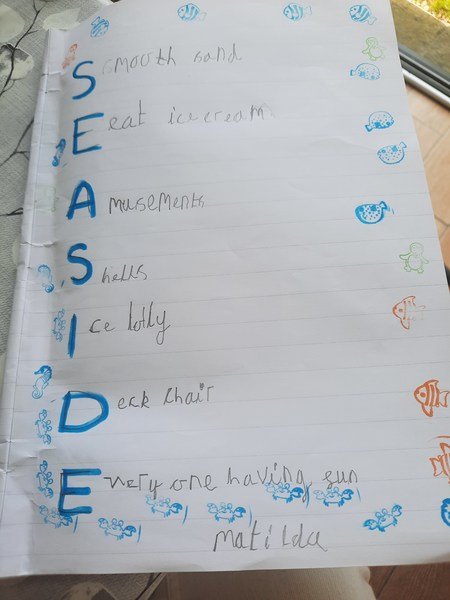 Ssmooth sand
Eeat ice cream
Amusements
Shells
Ice lolly
Deck chair
Every one having fun
Matilda